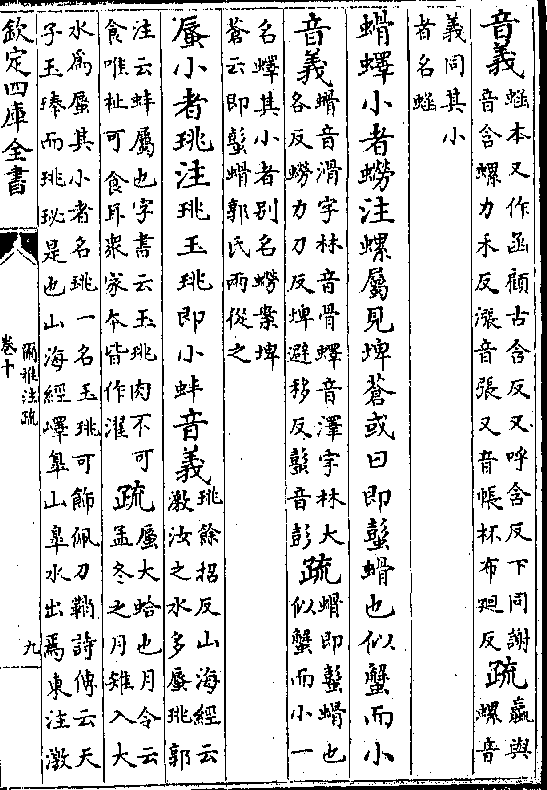 音義蜬本又作函顧古含反又呼含反下同謝
音含螺力禾反漲音張又音帳杯布廻反
疏蠃與
螺音
義同其小
者名蜬
蜎蠌小者蟧注螺屬見埤蒼或曰即蟚蜎也似蟹而小
音義蜎音滑字林音骨蠌音澤字林大
各反蟧力刀反埤避移反蟚音彭
疏蜎即蟚蜎也
似蟹而小一
名蠌其小者别名蟧案埤
蒼云即蟚蜎郭氏兩從之
蜃小者珧注珧玉珧即小蚌音義珧餘招反山海經云
激汝之水多蜃珧郭
注云蚌屬也字書云玉珧肉不可
食唯柱可食耳衆家本皆作濯
疏蜃大蛤也月令云
孟冬之月雉入大
水為蜃其小者名珧一名玉珧可飾佩刀鞘詩傳云天
子玉琫而珧珌是也山海經嶧臯山臯水出焉東注激
欽定四庫全書
爾雅注疏
卷十
九